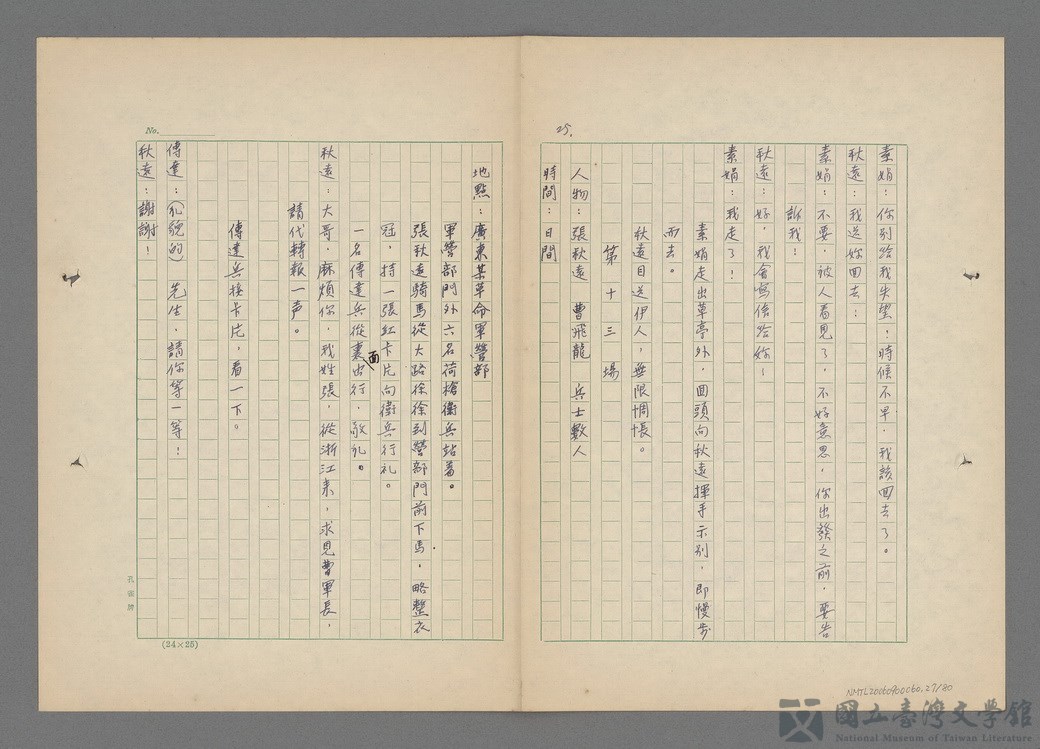 25.
素娟：你別給我失望！時候不早，我該回去了。
秋遠：我送妳回去：
素娟：不要，被人看見了，不好意思，你出發之前，要告
訴我！
秋遠：好，我會寫信給妳～
素娟：我走了！
素娟走出草亭外，回頭向秋遠揮手示別，即慢步
而去。
秋遠目送伊人，無限惆悵。
第十三場
人物：張秋遠　曹飛龍　兵士數人
時間：日間
No.
地點：廣東某革命軍營部
軍營部門外六名荷槍衛兵站着。
張秋遠騎馬從大路徐徐到營部門前下馬，略整衣
冠，持一張紅卡片向衛兵行礼。
一名傳達兵從裏面出行，敬礼。
秋遠：大哥，麻煩你，我姓張，從浙江來，求見曹軍長，
請代轉報一声。
傳達兵接卡片，看一下。
傳達：（礼貌的）先生，請你等一等！
秋遠：謝謝！
孔雀牌
(24×25)
NMTL20060900060.27/80
國立臺灣文學館
National Museum of Taiwan Literature